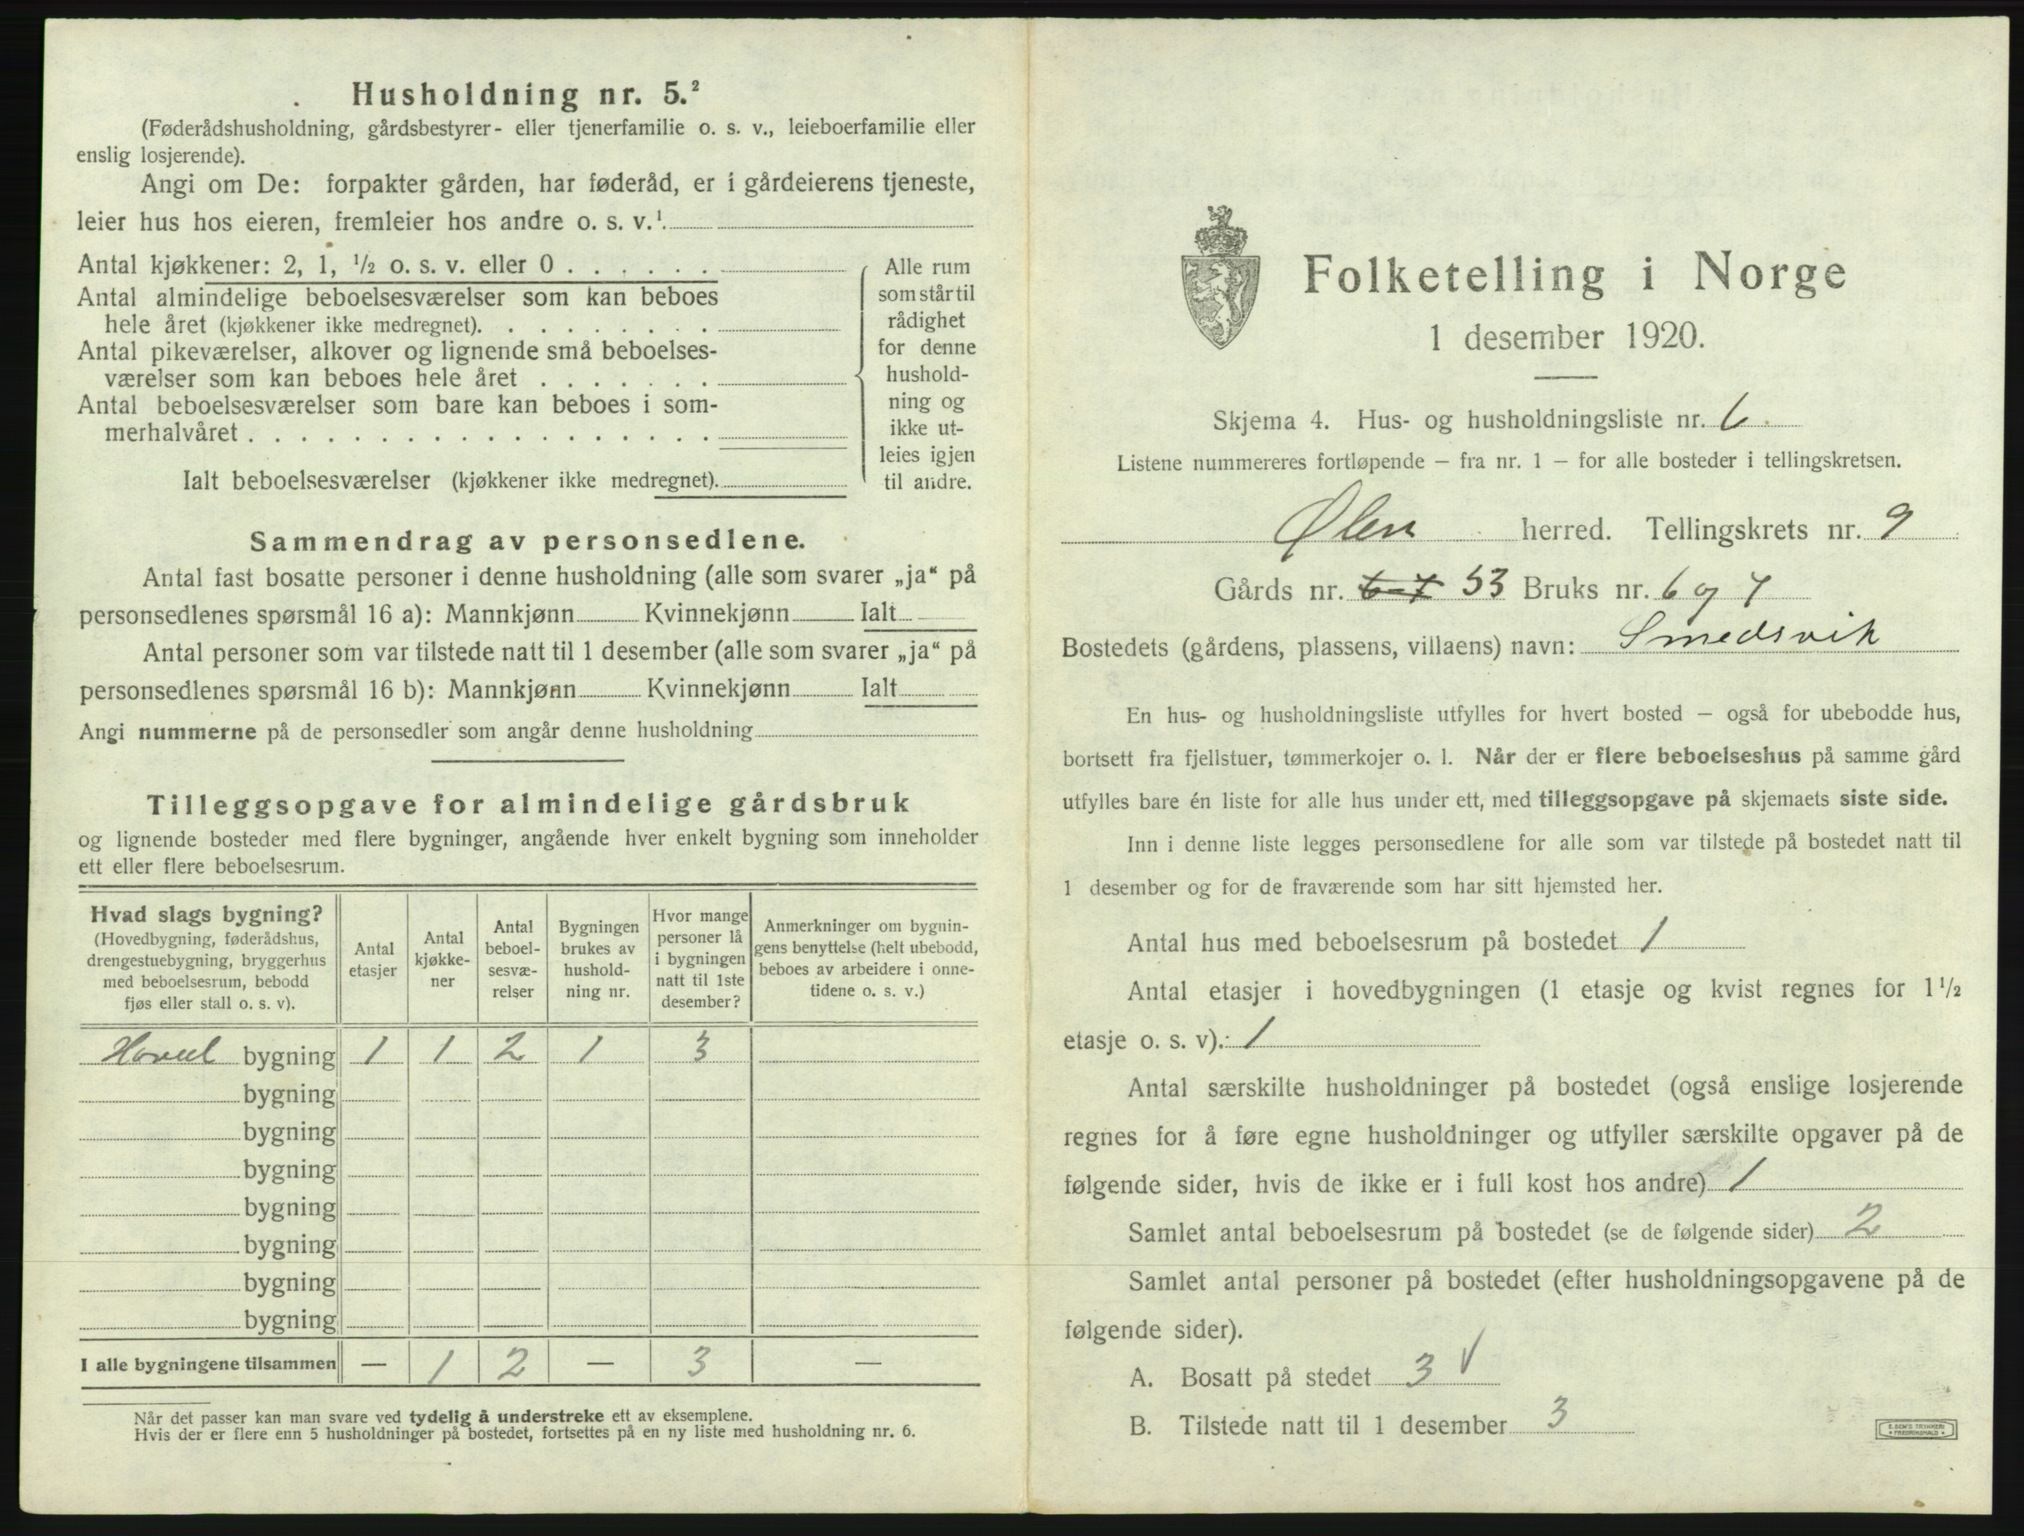 Husholdning nr. 5.²
(Føderådshusholdning, gårdsbestyrer- eller tjenerfamilie o. s. v., leieboerfamilie eller
enslig losjerende).
Angi om De: forpakter gården, har føderåd, er i gårdeierens tjeneste,
leier hus hos eieren, fremleier hos andre o. s. v.¹
Antal kjøkkener: 2, 1, ½ o. s. v. eller 0 . . . . . .
Antal almindelige beboelsesværelser som kan beboes
hele året (kjøkkener ikke medregnet). . . . . . . . .
Antal pikeværelser, alkover og lignende små beboelses-
værelser som kan beboes hele året . . . . . . .
Antal beboelsesværelser som bare kan beboes i som-
merhalvåret . . . . . . . . . . . . . . . . . .
Ialt beboelsesværelser (kjøkkener ikke medregnet).
Alle rum
som står til
rådighet
for denne
hushold-
ning og
ikke ut-
leies igjen
til andre.
Sammendrag av personsedlene.
Antal fast bosatte personer i denne husholdning (alle som svarer „ja“ på
personsedlenes spørsmål 16 a): Mannkjønn Kvinnekjønn Ialt
Antal personer som var tilstede natt til 1 desember (alle som svarer „ja“ på
personsedlenes spørsmål 16 b): Mannkjønn Kvinnekjønn Ialt
Angi nummerne på de personsedler som angår denne husholdning
Tilleggsopgave for almindelige gårdsbruk
og lignende bosteder med flere bygninger, angående hver enkelt bygning som inneholder
ett eller flere beboelsesrum.
Hvad slags bygning?
(Hovedbygning, føderådshus,
drengestuebygning, bryggerhus
med beboelsesrum, bebodd
fjøs eller stall o. s. v).
Antal
etasjer
Antal
kjøkke-
ner
Antal
beboel-
sesvæ-
relser
Bygningen
brukes av
hushold-
ning nr.
Hvor mange
personer lå
i bygningen
natt til 1ste
desember?
Anmerkninger om bygnin-
gens benyttelse (helt ubebodd,
beboes av arbeidere i onne-
tidene o. s. v.)
Hoved bygning 1 1 2 1 3
bygning
bygning
bygning
bygning
bygning
bygning
bygning
I alle bygningene tilsammen — 1 2 — 3 —
Når det passer kan man svare ved tydelig å understreke ett av eksemplene.
Hvis der er flere enn 5 husholdninger på bostedet, fortsettes på en ny liste med husholdning nr. 6.
Folketelling i Norge
1 desember 1920.
Skjema 4. Hus- og husholdningsliste nr. 6.
Listene nummereres fortløpende – fra nr. 1 – for alle bosteder i tellingskretsen.
Ølen herred. Tellingskrets nr. 9
Gårds nr. 6-7 53 Bruks nr. 6 og 7
Bostedets (gårdens, plassens, villaens) navn: Smedsvik
En hus- og husholdningsliste utfylles for hvert bosted – også for ubebodde hus,
bortsett fra fjellstuer, tømmerkojer o. l. Når der er flere beboelseshus på samme gård
utfylles bare én liste for alle hus under ett, med tilleggsopgave på skjemaets siste side.
Inn i denne liste legges personsedlene for alle som var tilstede på bostedet natt til
1 desember og for de fraværende som har sitt hjemsted her.
Antal hus med beboelsesrum på bostedet 1
Antal etasjer i hovedbygningen (1 etasje og kvist regnes for 1½
etasje o. s. v).: 1
Antal særskilte husholdninger på bostedet (også enslige losjerende
regnes for å føre egne husholdninger og utfyller særskilte opgaver på de
følgende sider, hvis de ikke er i full kost hos andre) 1
Samlet antal beboelsesrum på bostedet (se de følgende sider) 2
Samlet antal personer på bostedet (efter husholdningsopgavene på de
følgende sider).
A. Bosatt på stedet 3 V
B. Tilstede natt til 1 desember 3